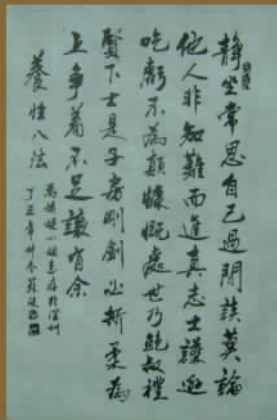 静坐常思自己過閒談莫論
他人非知難而進真志士謙遜
吃虧不為顛慷慨處世乃鮑叔禮
賢下士是子房剛劍必折柔為
上爭着不足讓有余
養性八法